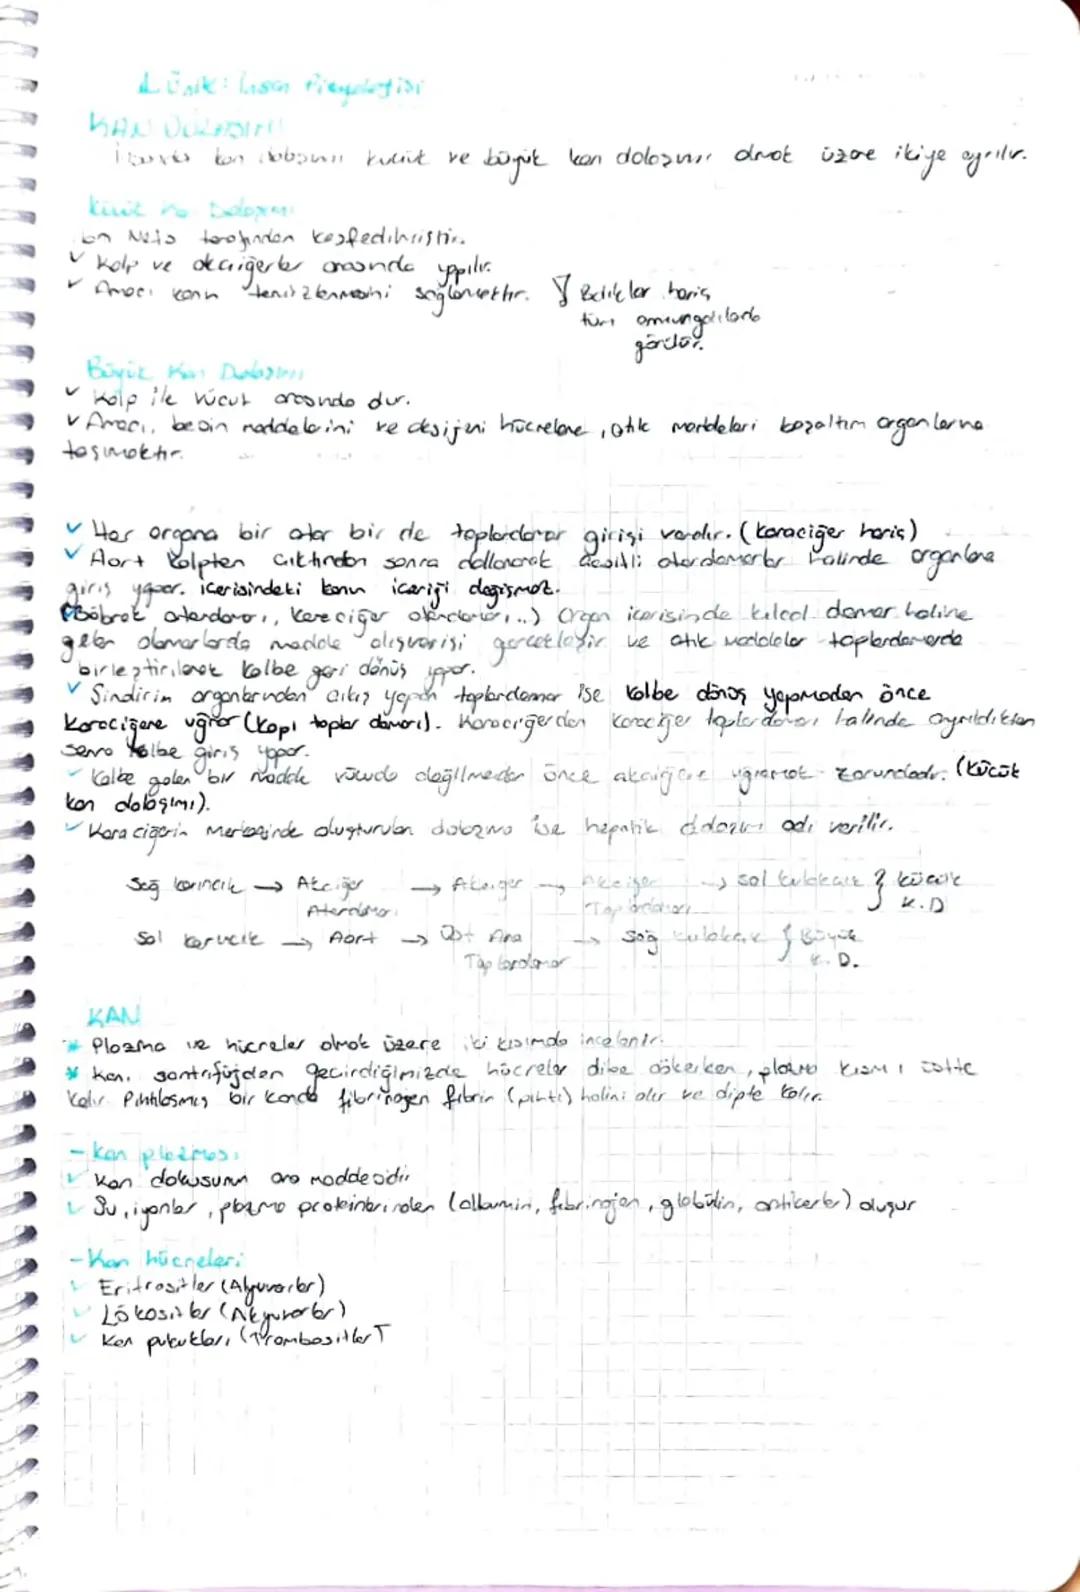 1. Ünite: İnsan Fizyolojisi
KAN DOLAŞIMI
kan dolaşımı küçük ve büyük kan dolaşımı olmak üzere ikiye ayrılır.
Küçük Kan Dolaşımı
tarafından keşfedilmiştir.
✓ Kalp ve akciğerler arasında yapılır.
✓ Amacı kanın temizlenmesini sağlamaktır. Balıklar hariç
tüm omurgalılarda
görülür.
Büyük Kan Dolaşımı
✓ Kalp ile vücut arasında dır.
✓ Amacı, besin maddelerini ve oksijeni hücrelere, atık maddeleri boşaltım organlarına
taşımaktır.
✓ Her organa bir atar bir de toplardamar girişi vardır. (Karaciğer hariç)
✓ Aort kalpten çıktıktan sonra dallanarak çeşitli atardamarlar halinde organlara
giriş yapar. içerisindeki kanın içeriği değişmez.
(Böbrek atardamarı, Karaciğer atardamarı...) Organ içerisinde kılcal damar haline
gelen damarlarda madde alışverişi gerçekleşir ve atık maddeler toplardamarda
birleştirilerek kalbe geri dönüş yapar.
✓ Sindirim organlarından çıkış yapan toplardamar ise kalbe dönüş yapmadan önce
karaciğere uğrar (Kapı toplar damarı). Karaciğerden karaciğer toplardamarı halinde ayrıldıktan
sonra kalbe giriş yapar.
✓ Kalbe gelen bir madde vücuda dağılmadan önce akciğere uğramak zorundadır. (Küçük
kan dolaşımı).
✓ Karaciğerin merkezinde oluşturulan dolaşıma ise hepatik dolaşım adı verilir.
Sağ karıncık → Akciğer → Akciğer → Akciğer → sol kulakçık } küçük
Atardamarı Toplardamarı K.D
Sol karıncık → Aort → Üst Ana → Sağ kulakçık } Büyük
Toplardamar K.D.
KAN
* Plazma ve hücreler olmak üzere iki kısımda incelenir.
* Kanı santrifüjden geçirdiğimizde hücreler dibe çökerken, plazma kısmı üstte
kalır. Pıhtılaşmış bir kanda fibrinojen fibrin (pıhtı) halini alır ve dipte kalır.
- Kan plazması
✓ Kan dokusunun ara maddesidir
✓ Su, iyonlar, plazma proteinlerinden (albumin, fibrinojen, globülin, antikorlar) oluşur
- Kan hücreleri
✓ Eritrositler (Alyuvarlar)
✓ Lökositler (Akyuvarlar)
✓ Kan pulcukları (Trombositler)